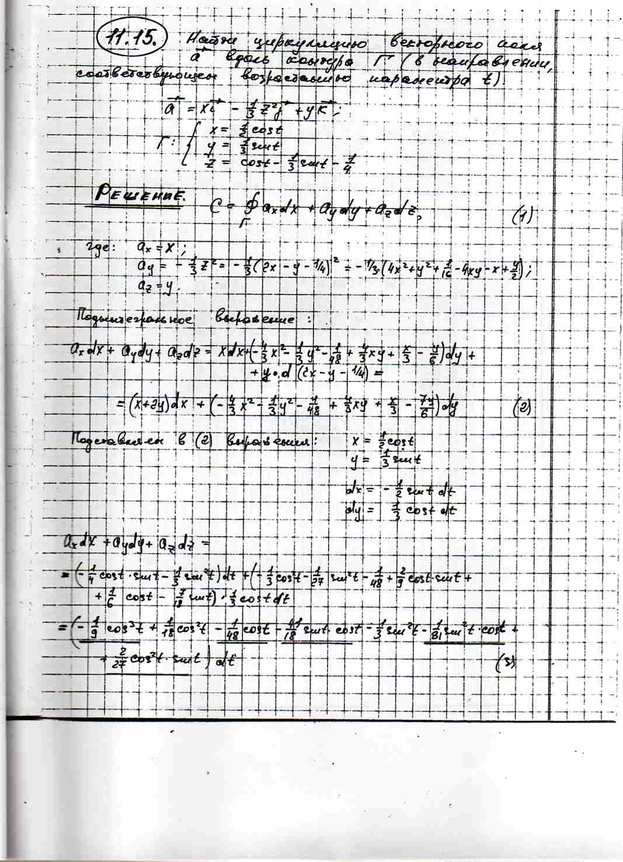 11.15. Найти циркуляцию векторного поля
a⃗ вдоль контура Г (в направлении,
соответствующем возрастанию параметра t):
a⃗ = xi⃗ - 1/3 z²j⃗ + yk⃗;
Г: { x = 1/2 cost
y = 1/3 sint
z = cost - 1/3 sint - 1/4
РЕШЕНИЕ. C = ∮_Г aₓdx + a_y dy + a_z dz, (1)
где: aₓ = x;
a_y = -1/3 z² = -1/3 (2x - y - 1/4)² = -1/3 (4x² + y² + 1/16 - 4xy - x + y/2);
a_z = y
Подынтегральное выражение:
aₓdx + a_y dy + a_z dz = xdx + (-4/3 x² - 1/3 y² - 1/48 + 4/3 xy + x/3 - y/6) dy +
+ y·d(2x - y - 1/4) =
= (x + 2y)dx + (-4/3 x² - 1/3 y² - 1/48 + 4/3 xy + x/3 - 7y/6) dy (2)
Подставляем в (2) выражения: x = 1/2 cost
y = 1/3 sint
dx = -1/2 sint dt
dy = 1/3 cost dt
aₓdx + a_y dy + a_z dz =
= (-1/4 cost·sint - 1/3 sin²t)dt + (-1/3 cos²t - 1/27 sin²t - 1/48 + 2/9 cost·sint +
+ 1/6 cost - 7/18 sint)·1/3 cost dt
= (-1/9 cos³t + 1/18 cos²t - 1/48 cost - 41/18 sint·cost - 1/3 sin²t - 1/81 sin²t·cost +
+ 2/27 cos²t·sint) dt (3)